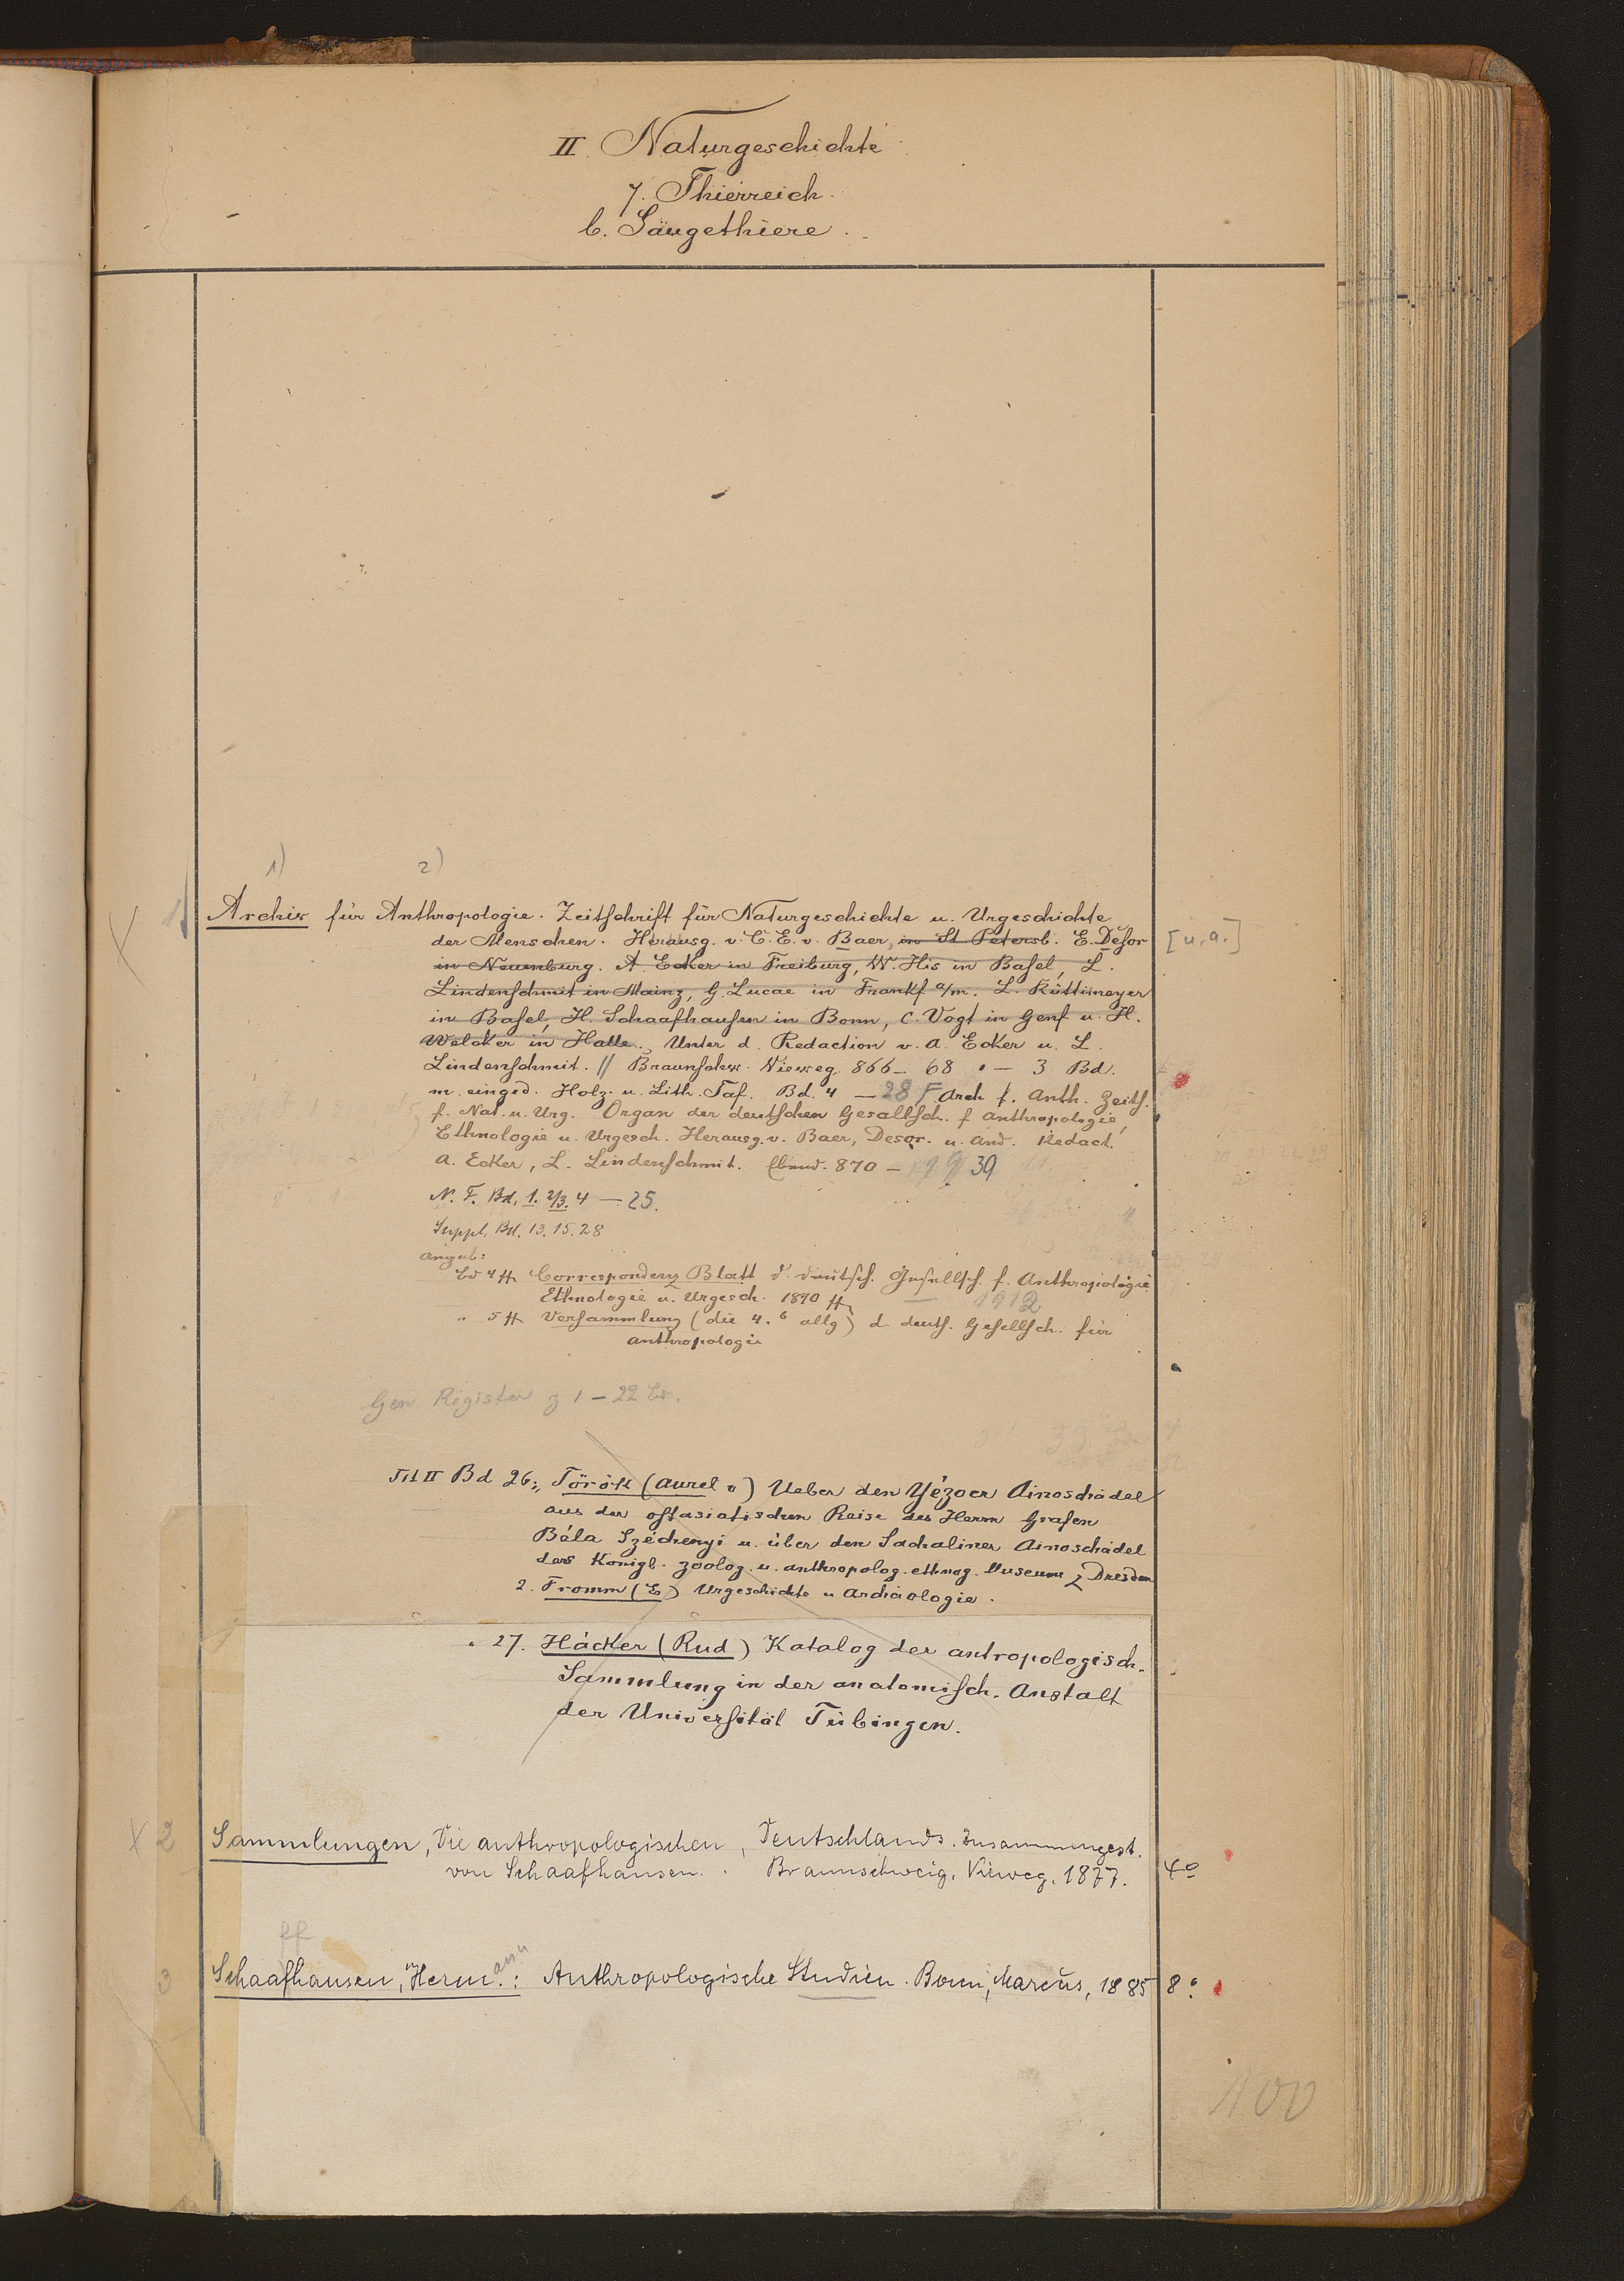 II. Naturgeschichte
7. Thierreich.
b. Säugethiere.
1) 2)
1. Archiv für Anthropologie. Zeitschrift für Naturgeschichte u. Urgeschichte
der Menschen. Herausg. v. C. E. v. Baer, in St Petersb. E. Desor [u. a.]
in Neuenburg. A. Ecker in Freiburg, W. His in Basel, L.
Lindenschmit in Mainz, G. Lucae in Frankf a/m. L. Rüttimeyer
in Basel, H. Schaafhausen in Bonn, C. Vogt in Genf u. H.
Welcker in Halle. Unter d. Redaction v. A. Ecker u. L.
Lindenschmit. // Braunschw. Vieweg 866-68 - 3 Bd.
m. eingd. Holz. u. Lith. Taf. Bd. 4 - 28 F Arch f. Anth. Zeits.
f. Nat. u. Urg. Organ der deutschen Gesellsch. f Anthropologie,
Ethnologie u. Urgesch. Herausg. v. Baer, Desor. u. And. Redact.
A. Ecker, L. Lindenschmit. Ebend. 870 - 1939
N. F. Bd. 1. 2/3. 4 - 25.
Suppl. Bd. 13. 15. 28
angeb:
Bd 4 ff Correspondenz Blatt d. deutsch. Gesellsch. f. Anthropologie
Ethnologie u. Urgesch. 1870 ff - 1912
" 5 ff Versammlung (die 4. 6 allg) d deuts. Gesellsch. für
Anthropologie
Gen. Register z 1 - 22 Bd.
Tit II Bd 26: Török (Aurel v) Ueber den Yézoer Ainoschädel
aus der ostasiatischen Reise des Herrn Grafen
Béla Széchenyi u. über den Sachaliner Ainoschädel
des Königl. zoolog. u. anthropolog. ethnog. Museums z Dresden
2. Fromm (E) Urgeschichte u Archäologie.
" 27. Häcker (Rud) Katalog der antropologisch.
Sammlung in der anatomisch. Anstalt
der Universität Tübingen.
X 2 Sammlungen, Die anthropologischen, Deutschlands. Zusammengest.
von Schaafhausen. Braunschweig, Vieweg. 1877. 4°
ff
3 Schaafhausen, Hermann: Anthropologische Studien. Bonn, Marcus, 1885 8°
100